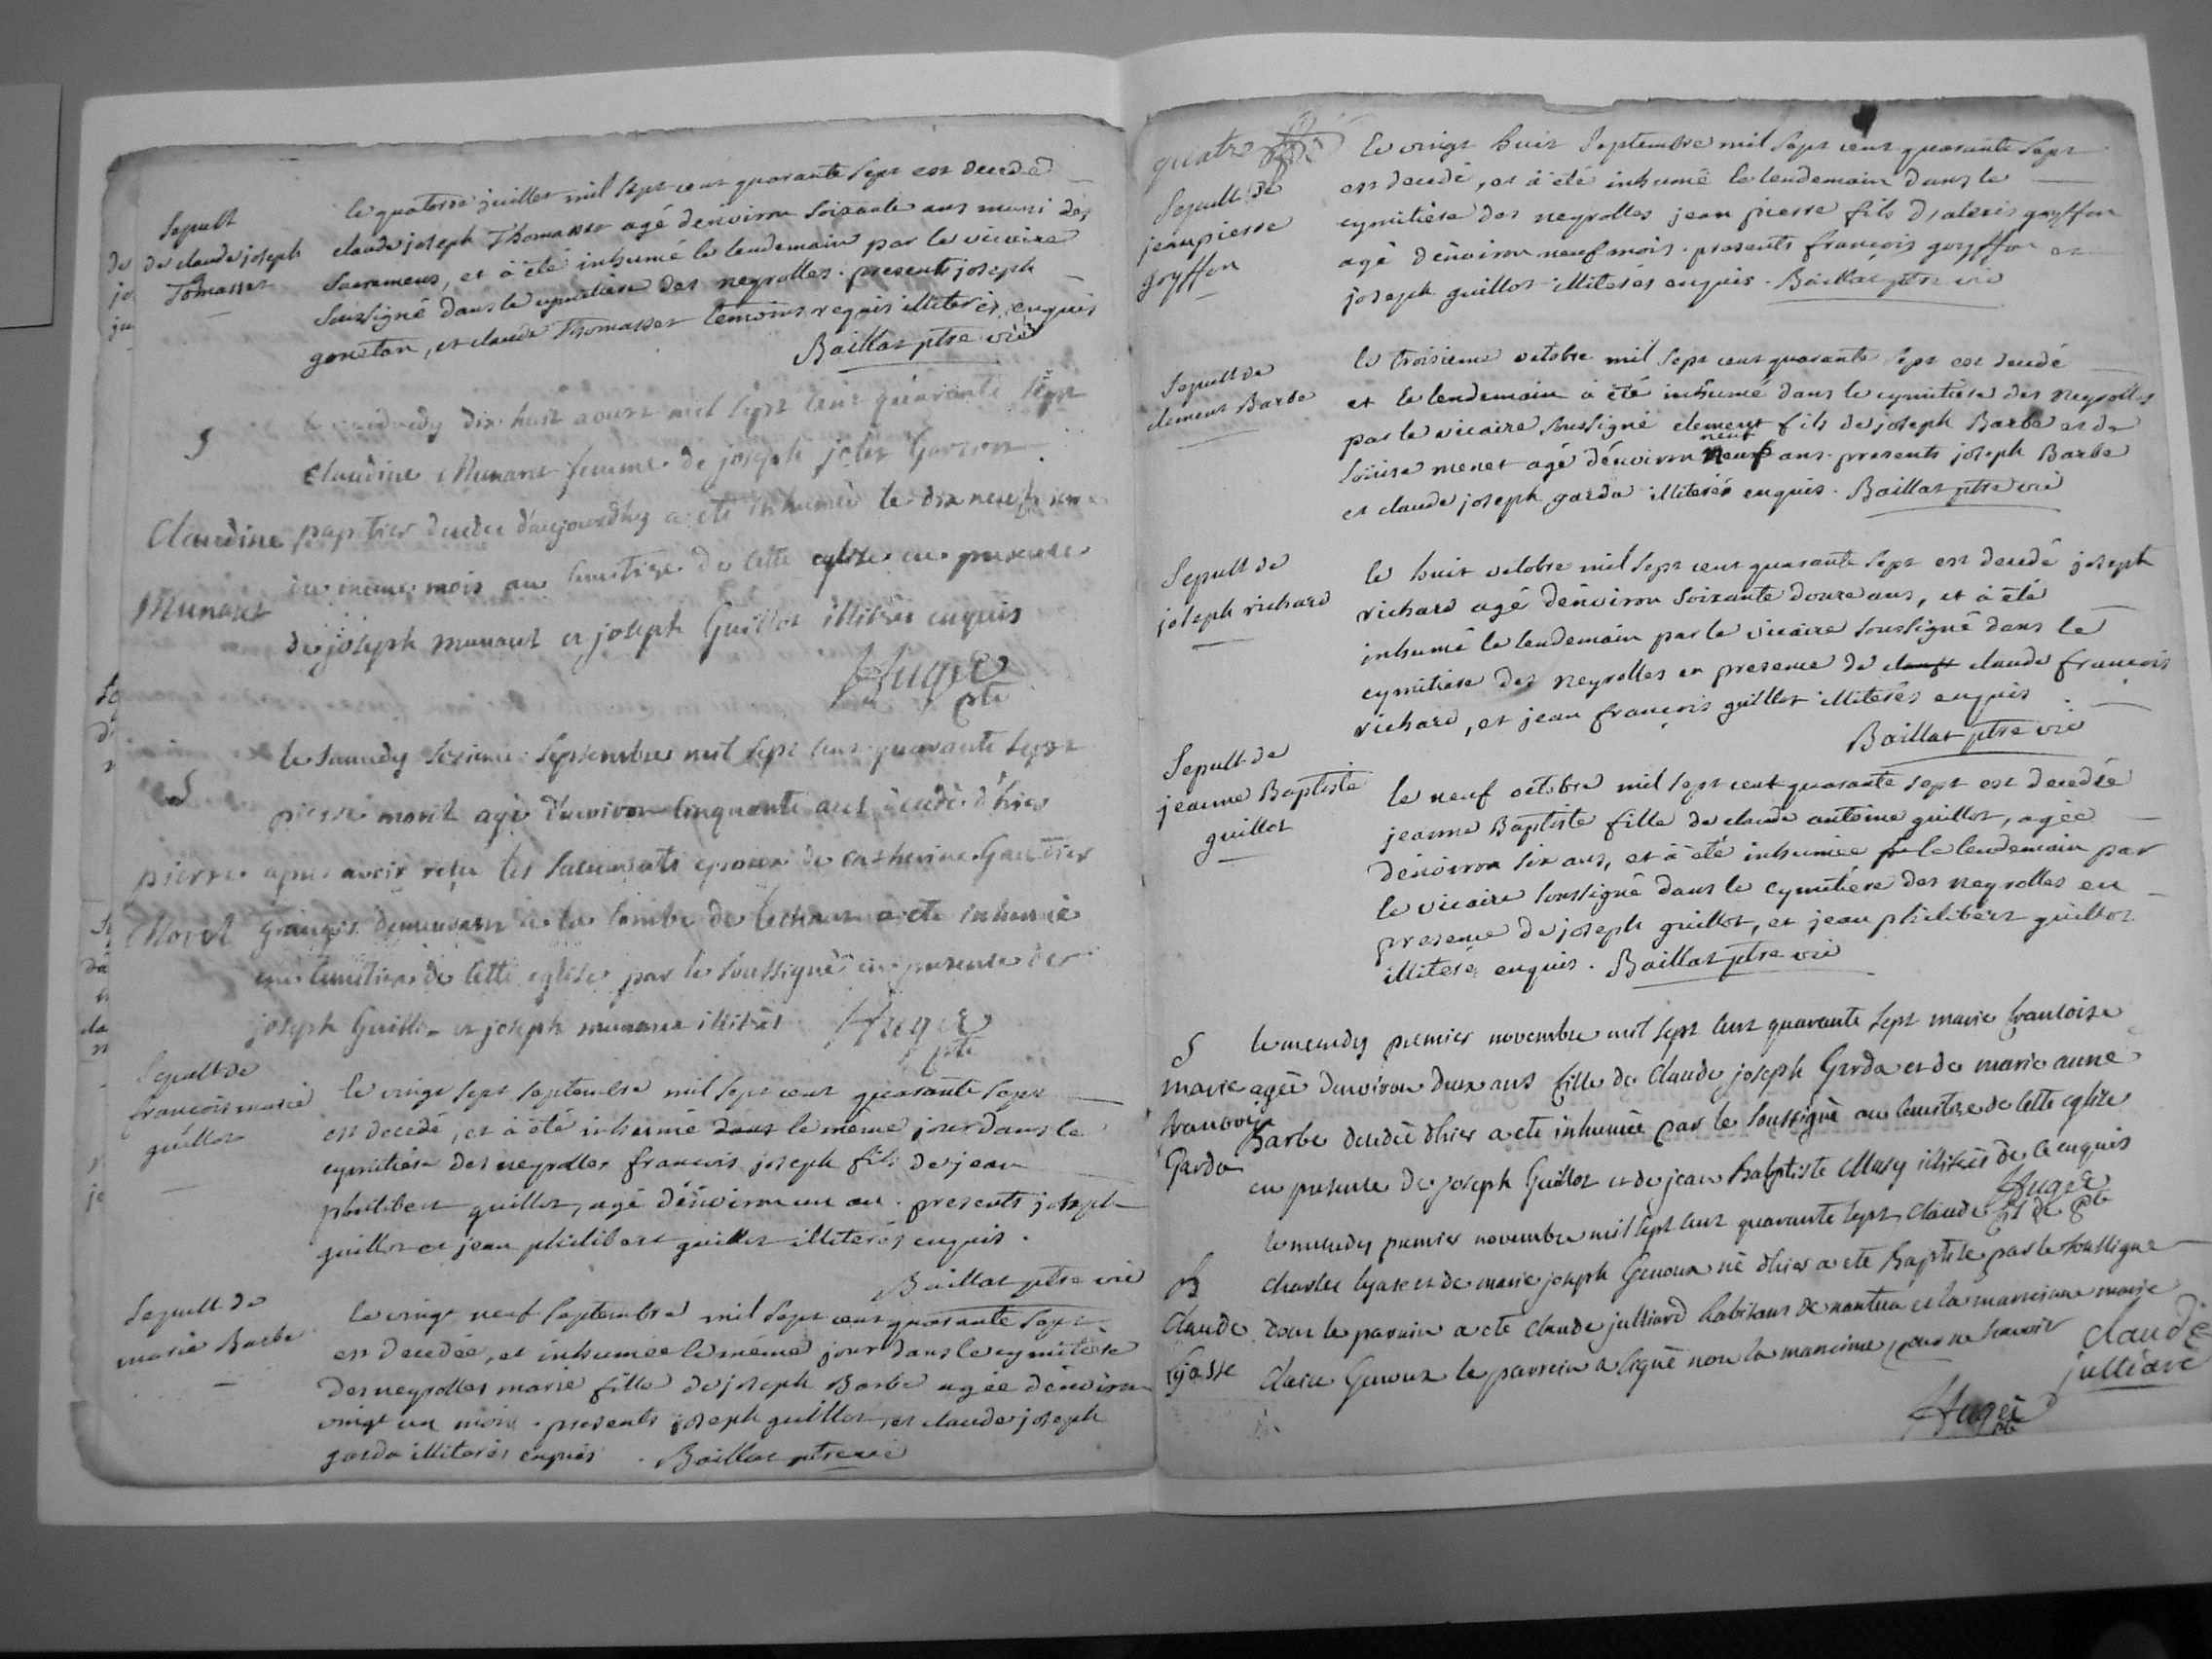 Sepult
de claude joseph
Tomasset
le quatorse juillet mil sept cent quarante sept est decedé
claude joseph Thomasset agé denviron soixante ans muni des
sacremens, et à été inhumé le lendemain par le vicaire
soussigné dans le cymetiere des neyrolles. presents joseph
goneton, et claude Thomasset temoins requis illiterés enquis
Baillat ptre vic
S
Claudine
Munaret
dix huit aoust mil sept cent quarante sept
Claudine Munaret femme de joseph jolir Garson
papetier decedée d'aujourdhuy a eté inhumée le dix neuf
du même mois au cemetiere de cette eglise en presence
de joseph munaret et joseph Guillot illitérés enquis
Augér
ptr
S
pierre
Moret
le samedy sezieme septembre mil sept cent quarante sept
pierre moret agé d'environ cinquante ans decedé d'hier
apres avoir reçu les sacrements epoux de catherine
demeurant a la combe de a eté inhumé
au cemetiere de cette eglise par le soussigné en presence de
joseph Guillot et joseph munaret illitérés Augér
ptr
Sepult de
francois marie
guillot
le vingt sept septembre mil sept cent quarante sept
est decedé, et à été inhumé dans le même jour dans le
cymitiere des neyrolles francois joseph fils de jean
philibert guillot, agé d'environ un an. presents joseph
guillot et jean philibert guillot illiterés enquis.
Baillat ptre vic
Sepult de
marie Barbe
le vingt neuf septembre mil sept cent quarante sept
est decedée, et inhumée le même jour dans le cymitiere
des neyrolles marie fille de joseph Barbe agée d'environ
vingt un mois. presents joseph guillot, et claude joseph
garda illiterés enquis. Baillat ptre vic
quatre
Sepult de
jean pierre
goyffon
le vingt huit septembre mil sept cent quarante sept
est decedé, et à été inhumé le lendemain dans le
cymitiere des neyrolles jean pierre fils d'alexis goyffon
agé d'environ neuf mois. presents francois goyffon et
joseph guillot illiterés enquis. Baillat ptre vic
Sepult de
clement Barbe
le troisieme octobre mil sept cent quarante sept est decedé
et le lendemain à été inhumé dans le cymitiere des neyrolles
par le vicaire soussigné clement fils de joseph Barbe et de
loüise menet agé d'environ neuf neuf ans. presents joseph Barbe
et claude joseph garda illiterés enquis. Baillat ptre vic
Sepult de
joseph richard
le huit octobre mil sept cent quarante sept est decedé joseph
richard agé d'environ soixante douze ans, et à été
inhumé le lendemain par le vicaire soussigné dans le
cymitiere des neyrolles en presence de claude francois
richard, et jean françois guillot illiterés enquis
Baillat ptre vic
Sepult de
jeanne Baptiste
guillot
le neuf octobre mil sept cent quarante sept est decedée
jeanne Baptiste fille de claude antoine guillot, agée
d'environ six ans, et à été inhumée le lendemain par
le vicaire soussigné dans le cymitiere des neyrolles en
presence de joseph guillot, et jean philibert guillot
illiterés enquis. Baillat ptre vic
S
marie
francoise
Garda
le mercredy premier novembre mil sept cent quarante sept marie francoise
agée d'environ deux ans fille de Claude joseph Garda et de marie anne
Barbe decedée d'hier a eté inhumée par le soussigné au cemetiere de cette eglise
en presence de joseph Guillot et de jean Baptiste Musy illitérés de ce enquis
Augér
ptr
B
Claude
Ogasse
le mercredy premier novembre mil sept cent quarante sept Claude fils de
charles et de marie joseph Genoux né d'hier a eté Baptisé par le soussigné
dont le parrain a eté Claude julliard habitant de nantua et la marraine marie
claire Genoux le parrein a signé non la marreine pour ne sçavoir
Claude
julliard
Augér
ptr